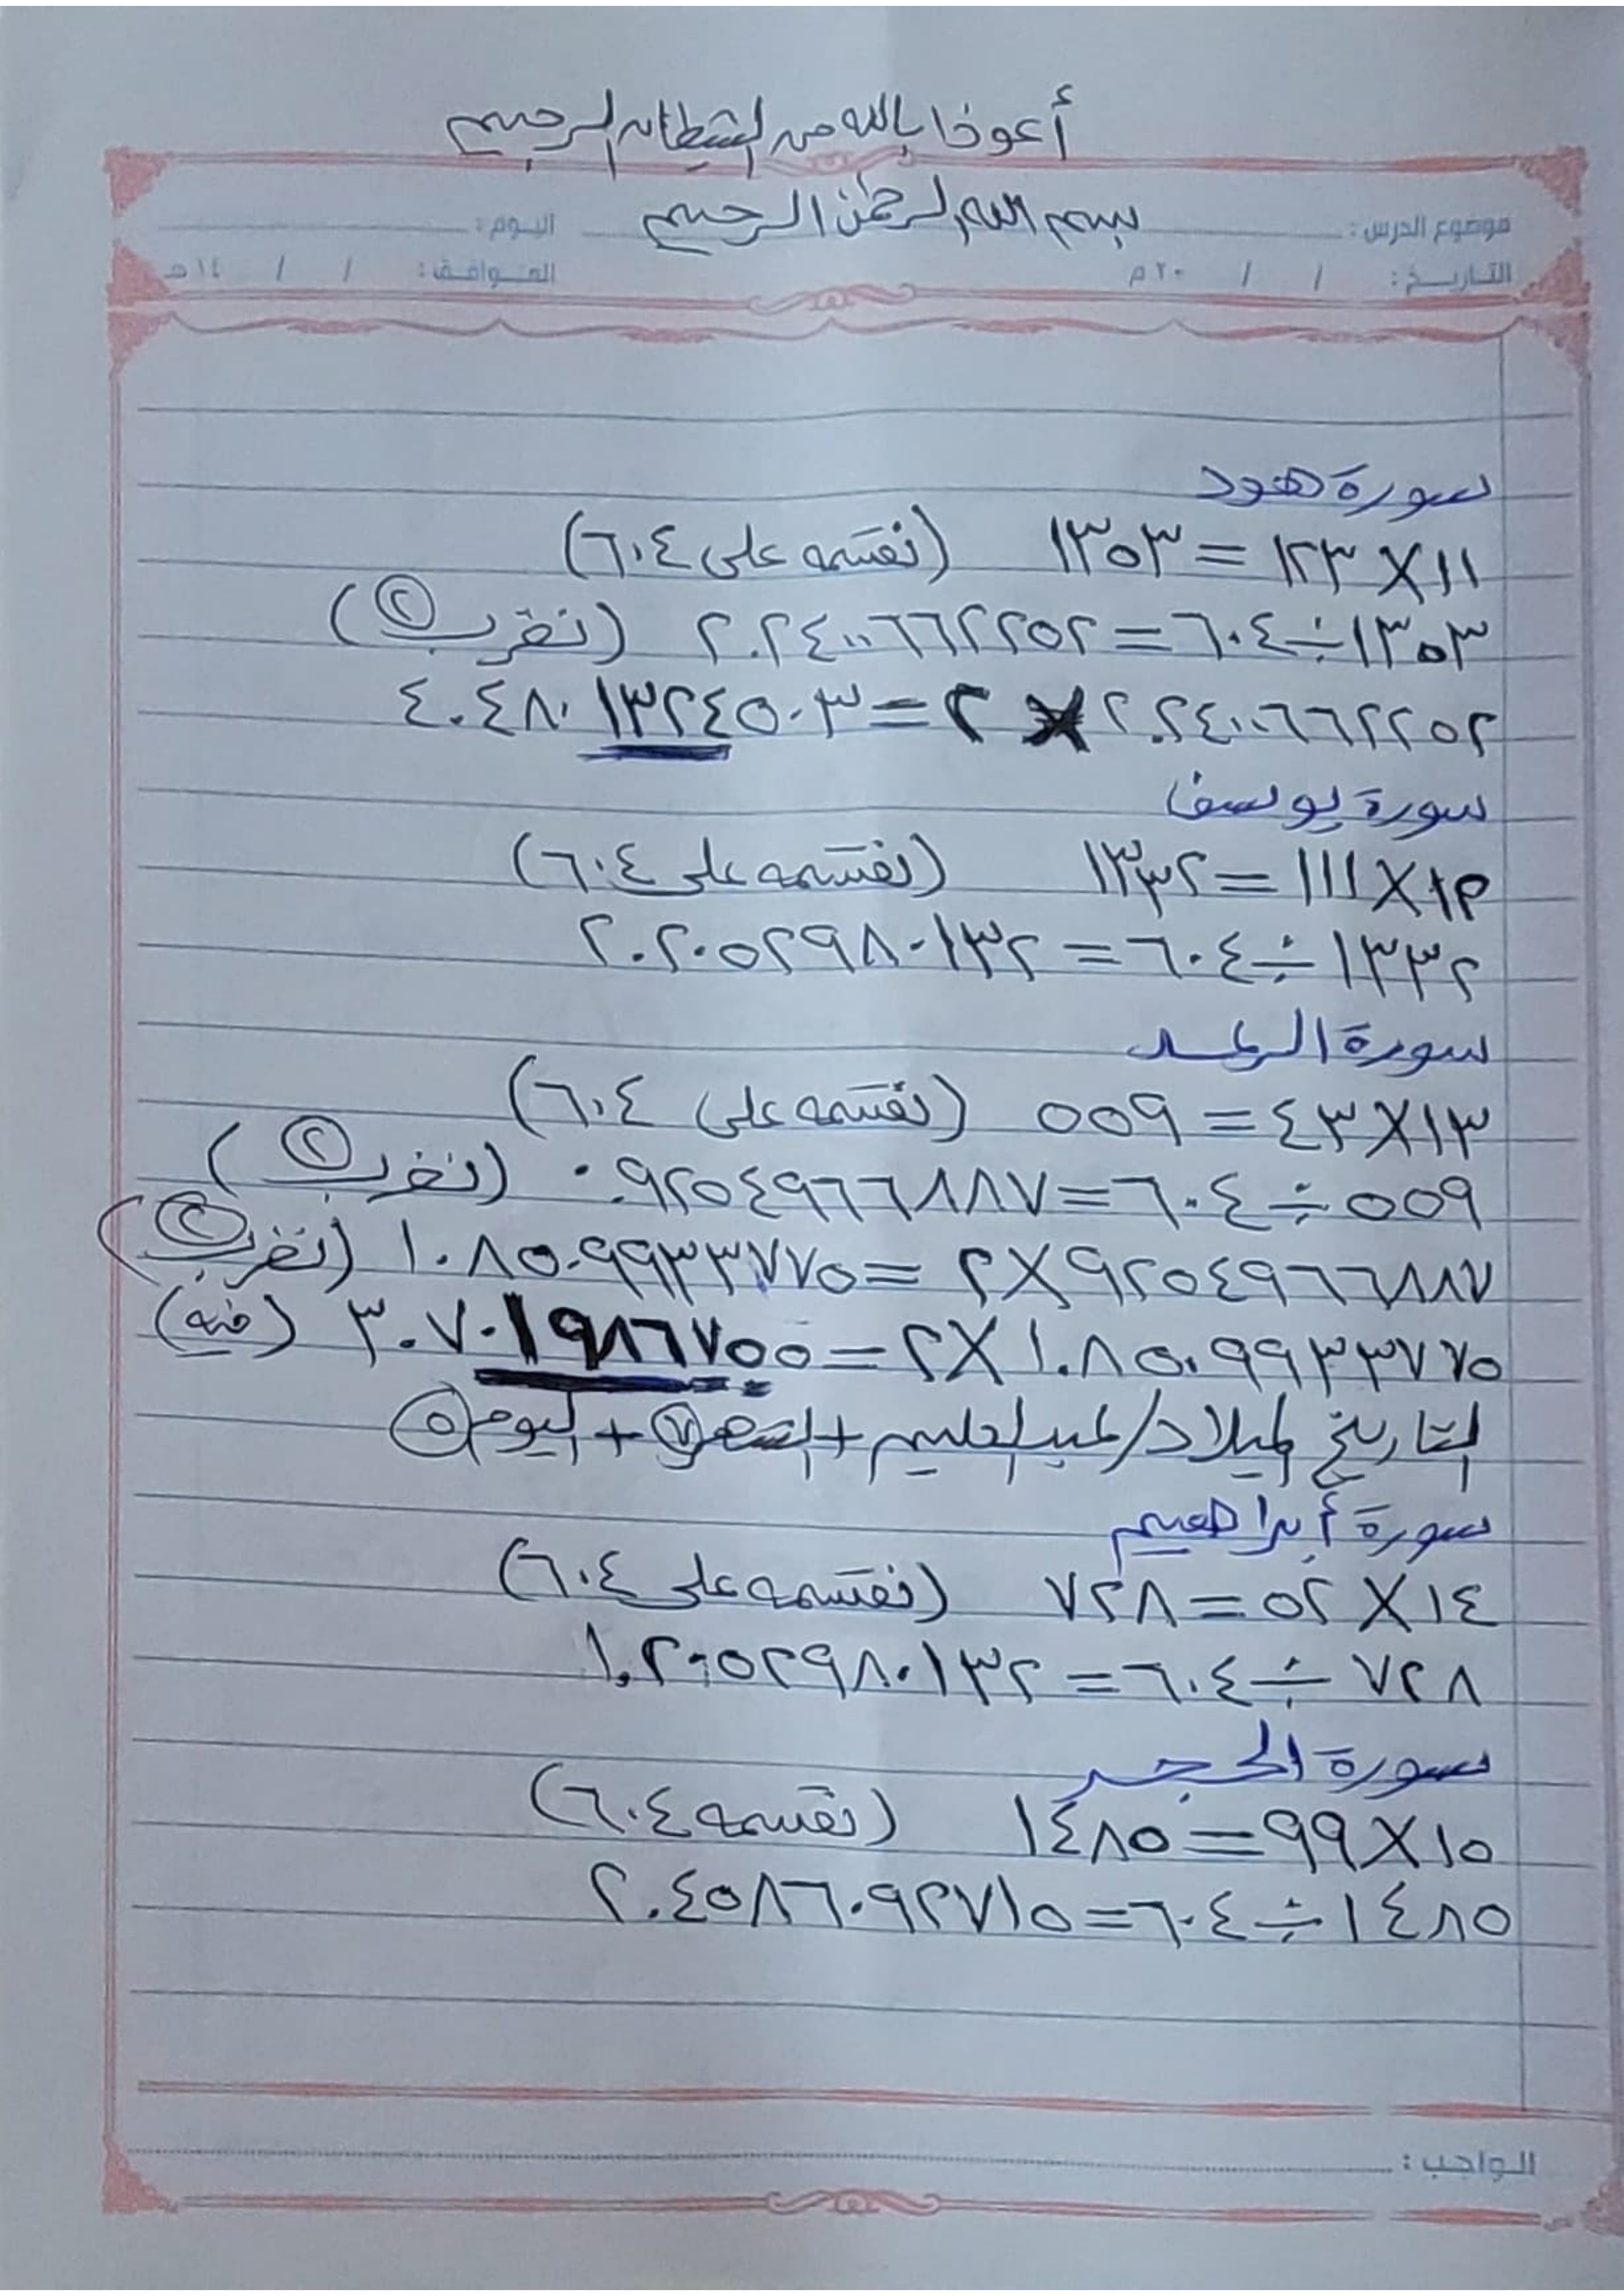 أعوذ بالله من الشيطان الرجيم
بسم الله الرحمن الرحيم
موضوع الدرس : اليوم :
التاريخ : / / ٢٠ م الموافق : / / ١٤ هـ
سورة هود
١١ X ١٢٣ = ١٣٥٣ (نقسمه على ٦٠٤)
١٣٥٣ ÷ ٦٠٤ = ٢.٢٤٠٠٦٦٢٢٥٢ (نضرب ٢)
٢.٢٤٠٠٦٦٢٢٥٢ X ٢ = ٤.٤٨٠١٣٢٤٥٠٣
سورة يوسف
١٢ X ١١١ = ١٣٣٢ (نقسمه على ٦٠٤)
١٣٣٢ ÷ ٦٠٤ = ٢.٢٠٥٢٩٨٠١٣٢
سورة الرعد
١٣ X ٤٣ = ٥٥٩ (نقسمه على ٦٠٤)
٥٥٩ ÷ ٦٠٤ = ٠.٩٢٥٤٩٦٦٨٨٧ (نضرب ٢)
٩٢٥٤٩٦٦٨٨٧ X ٢ = ١.٨٥٠٩٩٣٣٧٧٥ (نضرب ٢)
١.٨٥٠٩٩٣٣٧٧٥ X ٢ = ٣.٧٠١٩٨٦٧٥٥ (فيه)
التاريخ لميلاد/عبدالعليم + الشهر ٧ + اليوم ٥
سورة أبراهيم
١٤ X ٥٢ = ٧٢٨ (نقسمه على ٦٠٤)
٧٢٨ ÷ ٦٠٤ = ١.٢٠٥٢٩٨٠١٣٢
سورة الحجر
١٥ X ٩٩ = ١٤٨٥ (نقسمه ٦٠٤)
١٤٨٥ ÷ ٦٠٤ = ٢.٤٥٨٦٠٩٢٧١٥
الواجب :